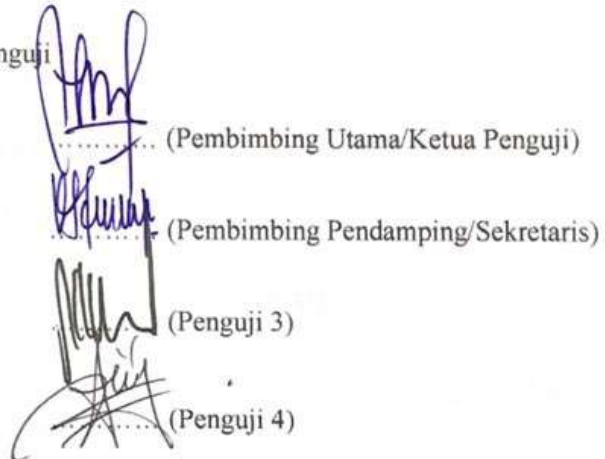 nguji
.......... (Pembimbing Utama/Ketua Penguji)
.......... (Pembimbing Pendamping/Sekretaris)
.......... (Penguji 3)
.......... (Penguji 4)